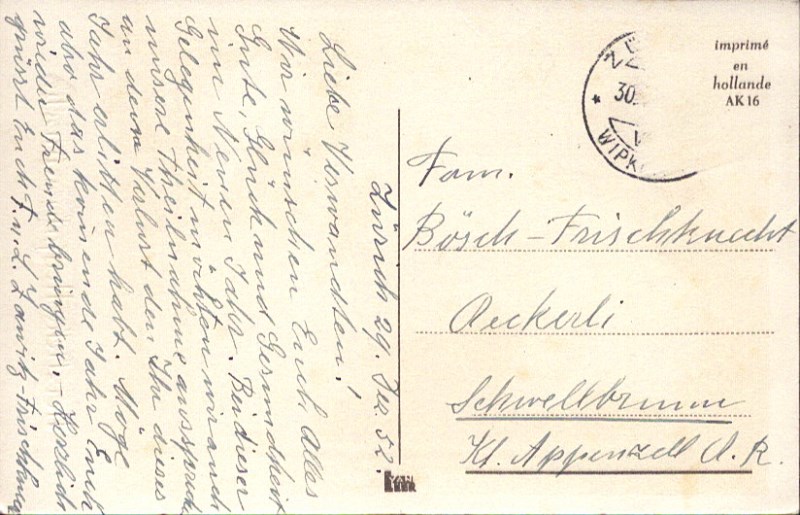 Zürich 29. Dez. 52.
Liebe Verwandten!
Wir wünschen Euch Alles
Gute, Glück und Gesundheit
im Neuen Jahr. Bei dieser
Gelegenheit möchten wir auch
unsere Theilnahme aussprech
an dem Verlust den Ihr dieses
Jahr erlitten habt. Möge
aber das komende Jahr Euch
wieder Freude bringen. – Herzlich
grüsst Euch F. u. L.
Fam.
Bösch – Frischknecht
Aeckerli
Schwellbrunn
Kt. Appenzell A. R.
30.
WIPK
imprimé
en
hollande
AK 16
VAN